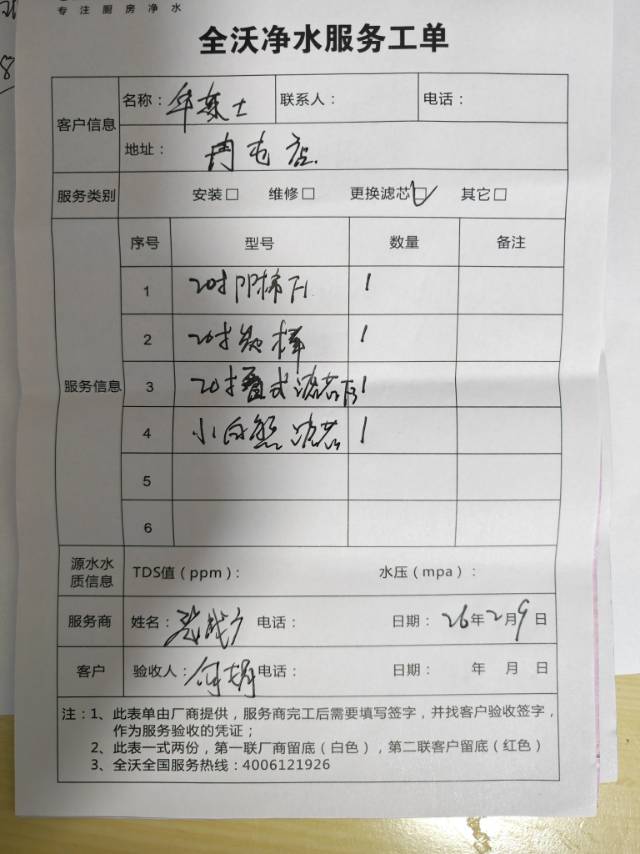 专注厨房净水
全沃净水服务工单
客户信息
名称：华莱士 联系人： 电话：
地址： 冉屯店.
服务类别 安装□ 维修□ 更换滤芯□ 其它□
序号 型号 数量 备注
服务信息
1 20寸 1
2 20寸 1
3 20寸 式滤芯 1
4 小白熊滤芯 1
5
6
源水水质信息 TDS值（ppm）： 水压（mpa）：
服务商 姓名： 电话： 日期：26年2月9日
客户 验收人：何 电话： 日期： 年 月 日
注：1、此表单由厂商提供，服务商完工后需要填写签字，并找客户验收签字，
作为服务验收的凭证；
2、此表一式两份，第一联厂商留底（白色），第二联客户留底（红色）
3、全沃全国服务热线：4006121926